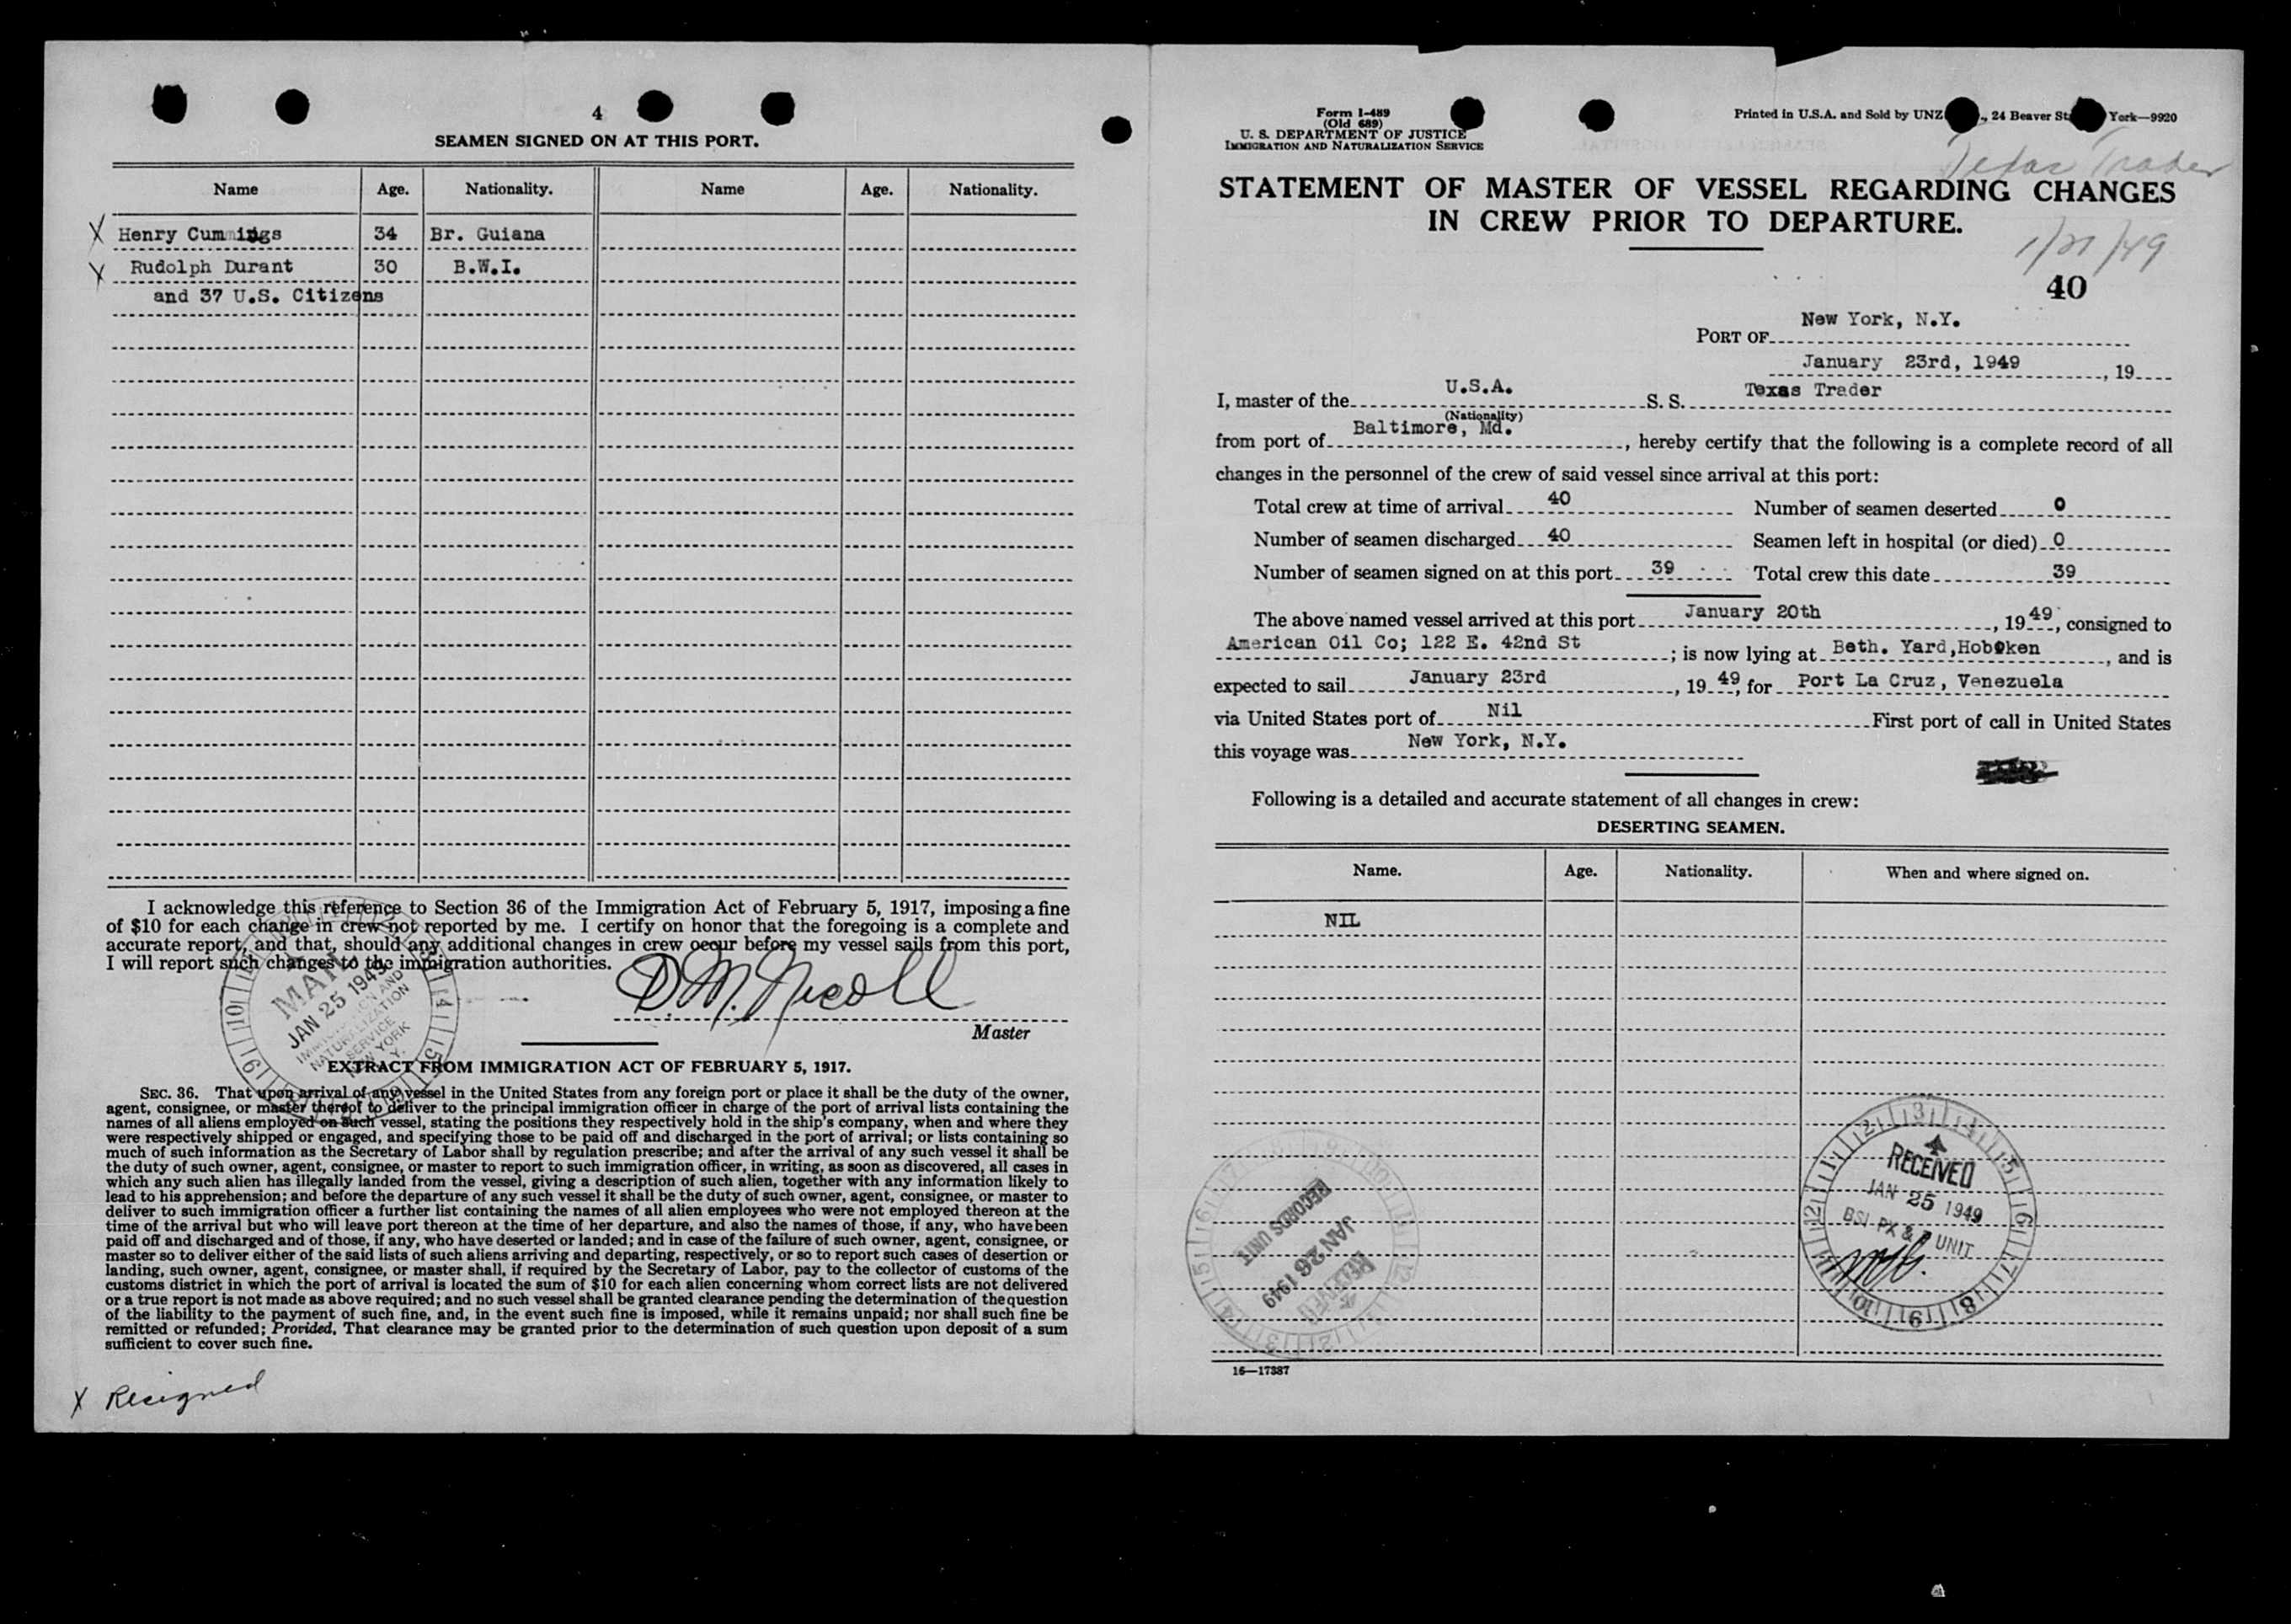 4
SEAMEN SIGNED ON AT THIS PORT.
Name Age. Nationality. Name Age. Nationality.
X Henry Cummings 34 Br. Guiana
X Rudolph Durant 30 B.W.I.
and 37 U.S. Citizens
I acknowledge this reference to Section 36 of the Immigration Act of February 5, 1917, imposing a fine
of $10 for each change in crew not reported by me. I certify on honor that the foregoing is a complete and
accurate report, and that, should any additional changes in crew occur before my vessel sails from this port,
I will report such changes to the immigration authorities.
D. M. Nicoll
Master
JAN 25 1949
IMMIGRATION AND
NATURALIZATION
SERVICE
NEW YORK
N. Y.
EXTRACT FROM IMMIGRATION ACT OF FEBRUARY 5, 1917.
SEC. 36. That upon arrival of any vessel in the United States from any foreign port or place it shall be the duty of the owner,
agent, consignee, or master thereof to deliver to the principal immigration officer in charge of the port of arrival lists containing the
names of all aliens employed on such vessel, stating the positions they respectively hold in the ship's company, when and where they
were respectively shipped or engaged, and specifying those to be paid off and discharged in the port of arrival; or lists containing so
much of such information as the Secretary of Labor shall by regulation prescribe; and after the arrival of any such vessel it shall be
the duty of such owner, agent, consignee, or master to report to such immigration officer, in writing, as soon as discovered, all cases in
which any such alien has illegally landed from the vessel, giving a description of such alien, together with any information likely to
lead to his apprehension; and before the departure of any such vessel it shall be the duty of such owner, agent, consignee, or master to
deliver to such immigration officer a further list containing the names of all alien employees who were not employed thereon at the
time of the arrival but who will leave port thereon at the time of her departure, and also the names of those, if any, who have been
paid off and discharged and of those, if any, who have deserted or landed; and in case of the failure of such owner, agent, consignee, or
master so to deliver either of the said lists of such aliens arriving and departing, respectively, or so to report such cases of desertion or
landing, such owner, agent, consignee, or master shall, if required by the Secretary of Labor, pay to the collector of customs of the
customs district in which the port of arrival is located the sum of $10 for each alien concerning whom correct lists are not delivered
or a true report is not made as above required; and no such vessel shall be granted clearance pending the determination of the question
of the liability to the payment of such fine, and, in the event such fine is imposed, while it remains unpaid; nor shall such fine be
remitted or refunded; Provided, That clearance may be granted prior to the determination of such question upon deposit of a sum
sufficient to cover such fine.
X Resigned
Form I-489
(Old 689)
U. S. DEPARTMENT OF JUSTICE
IMMIGRATION AND NATURALIZATION SERVICE
Printed in U.S.A. and Sold by UNZ ., 24 Beaver St York—9920
Texas Trader
STATEMENT OF MASTER OF VESSEL REGARDING CHANGES
IN CREW PRIOR TO DEPARTURE.
1/21/49
40
PORT OF New York, N.Y.
January 23rd, 1949, 19
I, master of the U.S.A. S. S. Texas Trader
(Nationality)
from port of Baltimore, Md., hereby certify that the following is a complete record of all
changes in the personnel of the crew of said vessel since arrival at this port:
Total crew at time of arrival 40 Number of seamen deserted 0
Number of seamen discharged 40 Seamen left in hospital (or died) 0
Number of seamen signed on at this port 39 Total crew this date 39
The above named vessel arrived at this port January 20th, 1949, consigned to
American Oil Co; 122 E. 42nd St; is now lying at Beth. Yard, Hoboken, and is
expected to sail January 23rd, 1949, for Port La Cruz, Venezuela
via United States port of Nil First port of call in United States
this voyage was New York, N.Y.
Following is a detailed and accurate statement of all changes in crew:
DESERTING SEAMEN.
Name. Age. Nationality. When and where signed on.
NIL
RECEIVED
JAN 25 1949
BSI PX & UNIT
RECORDS UNIT
JAN 26 1949
RECEIVED
16—17387